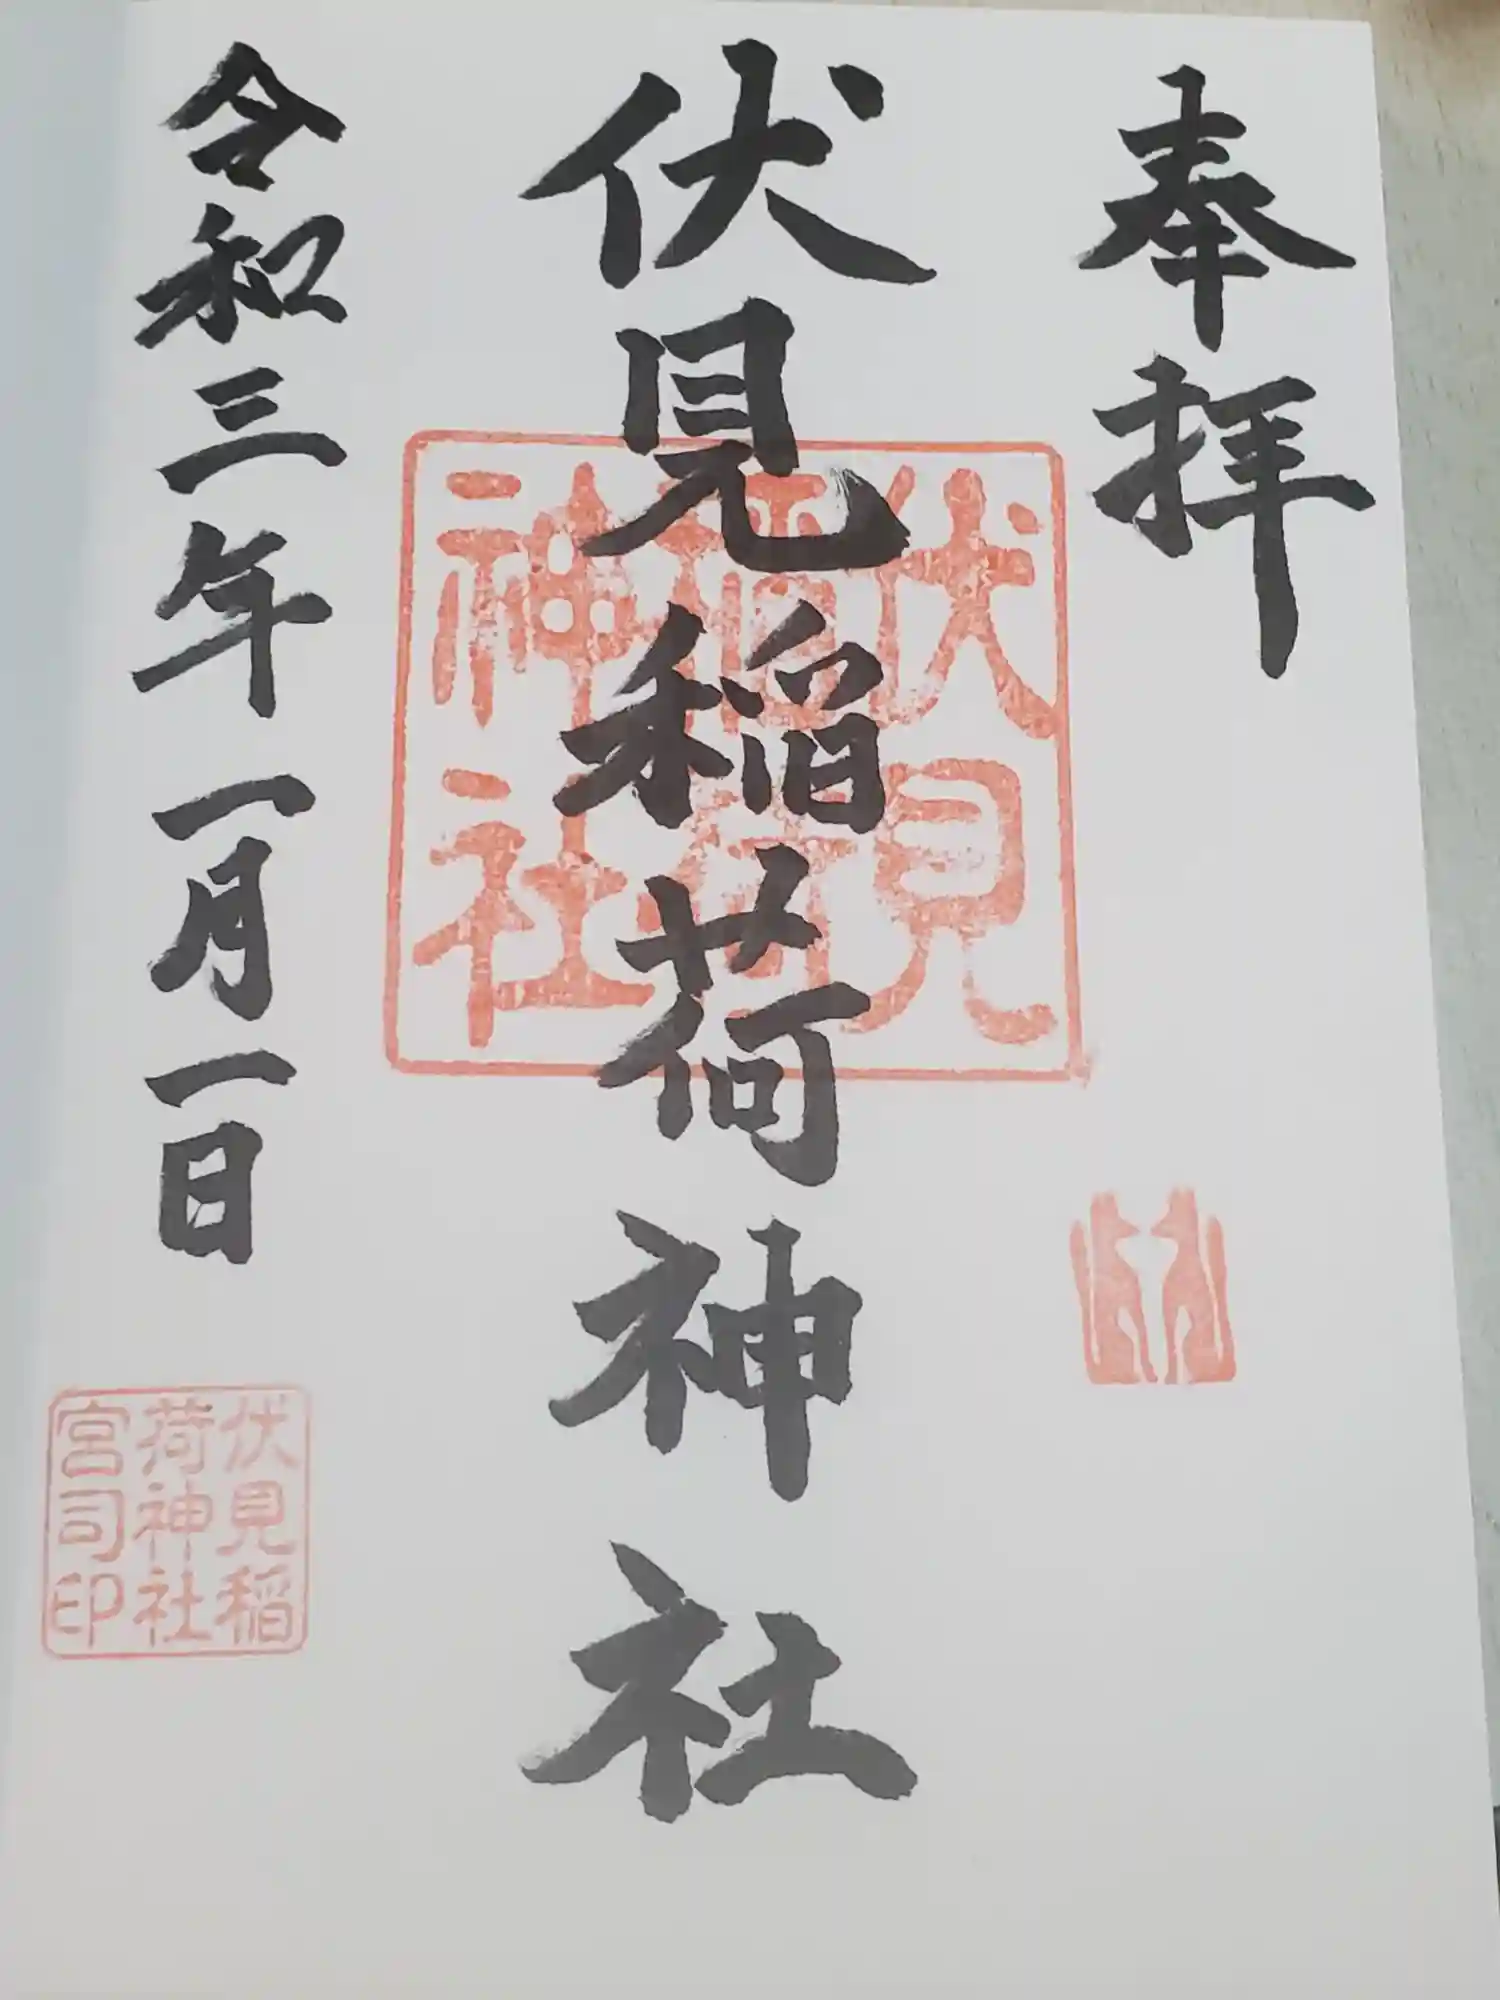 奉拝
伏見稲荷神社
令和三年一月一日
伏見
稲荷
神社
伏見稲
荷神社
宮司印